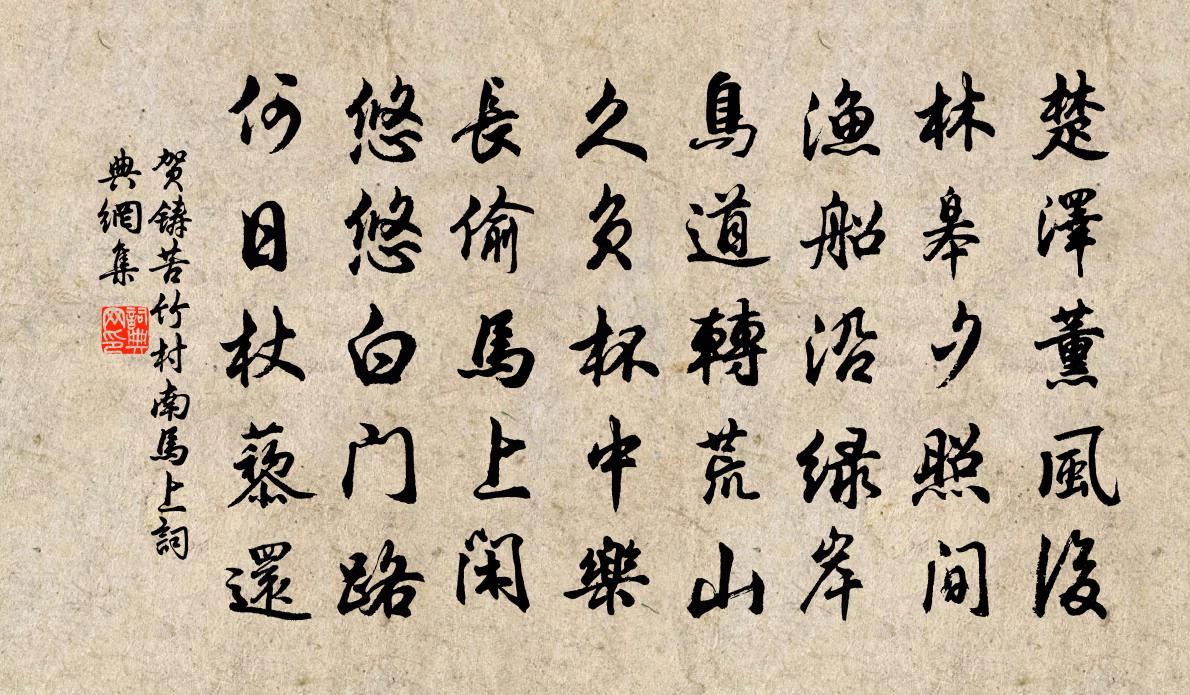 楚澤薰風後
林皋夕照間
漁船沿緑岸
鳥道轉荒山
久負杯中樂
長偷馬上閑
悠悠白门路
何日杖藜還
贺鑄苦竹村南馬上詞
典網集
詞典
网印